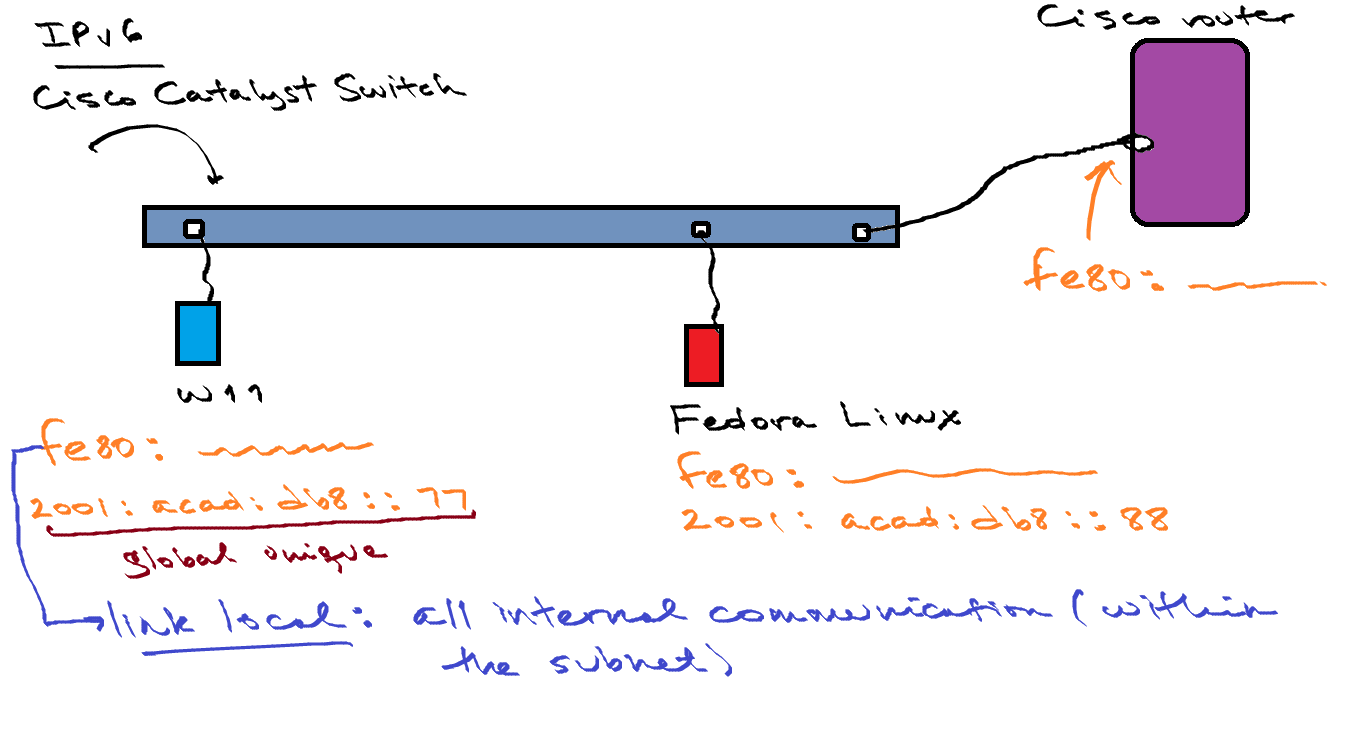 IPv6
Cisco Catalyst Switch
Cisco router
fe80:
W11
Fedora Linux
fe80:
2001: acad: db8:: 77
global unique
fe80:
2001: acad: db8:: 88
link local: all internal communication (within
the subnet)